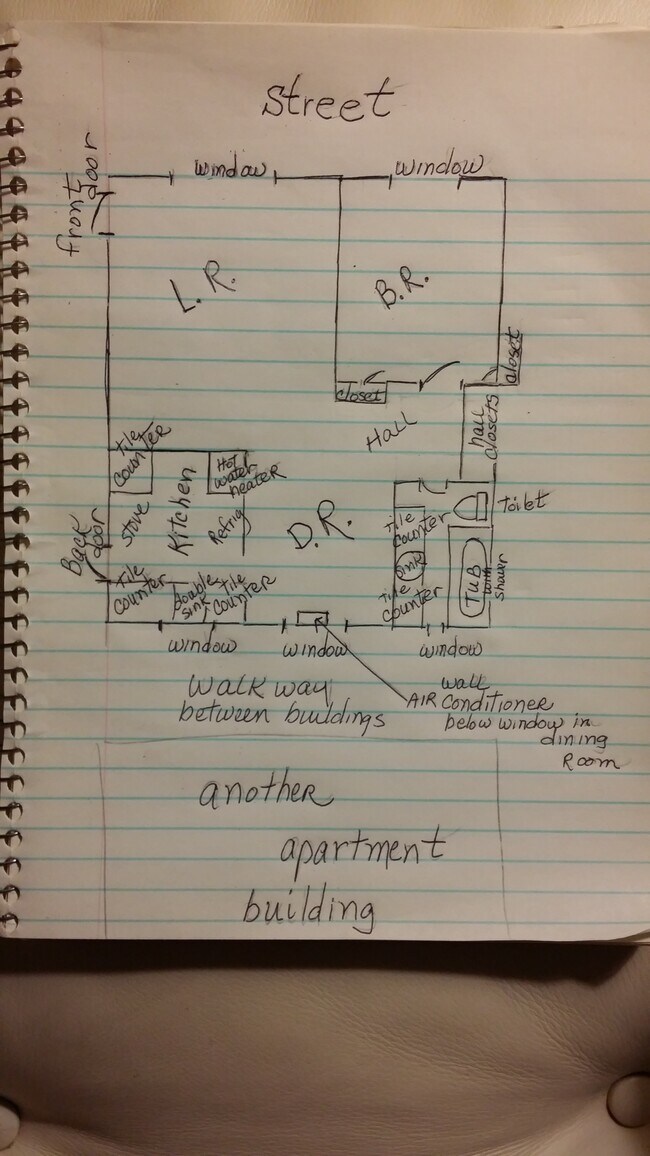 Street
window
window
front
door
L.R.
B.R.
closet
closet
Hall
hall
closets
Tile
counter
Hot
water
heater
Kitchen
Stove
Refrig
D.R.
Back
door
Tile
counter
double
sink
Tile
counter
Tile
counter
Sink
Tile
counter
Toilet
TUB
with
shower
window
window
window
Walkway
between buildings
AIR
wall
Conditioner
below window in
dining
Room
another
apartment
building